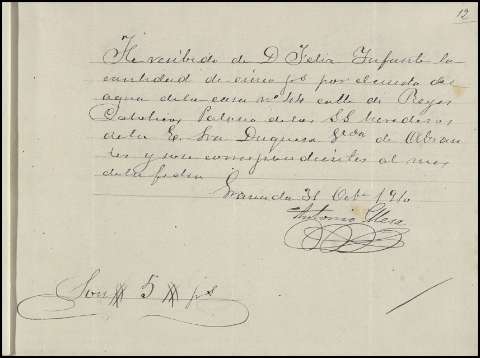 12
He recibido de D Felix Infante la
cantidad de cinco pts por el cuido del
agua de la casa nº 44 calle de Reyes
Catolicos, Palacio de los SS herederos
de la E. Sra Duquesa Vda de Abran-
tes y son correspondientes al mes
de la fecha
Granada 31 Octe 1910
Antonio Mesa
Son # 5 # pts